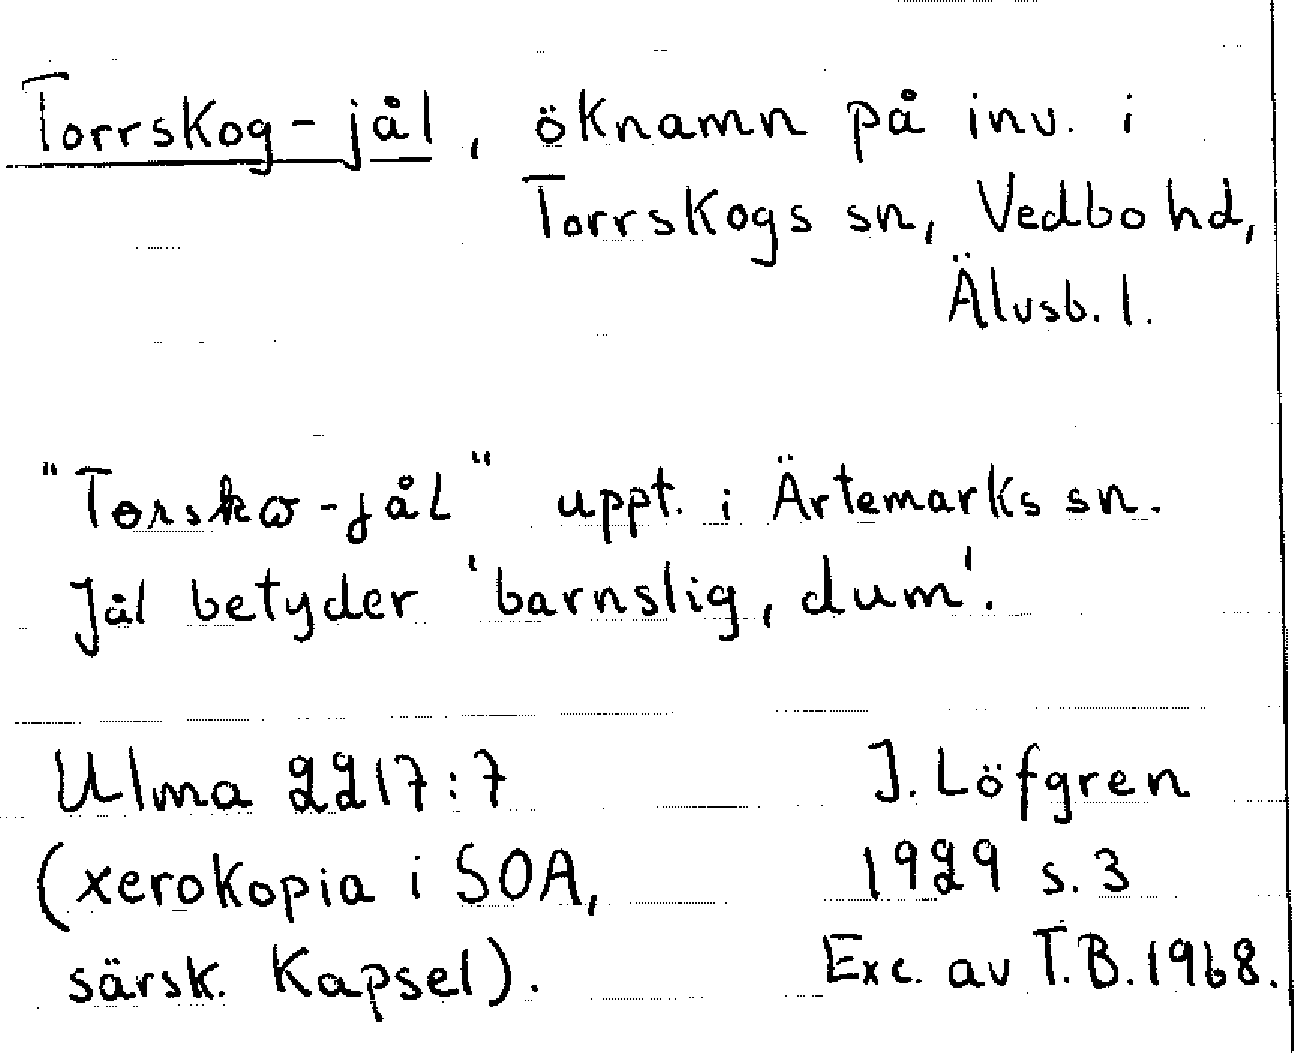 Torrskog-jål, öknamn på inv. i
Torrskogs sn, Vedbo hd,
Älvsb. l.
"Torsko-jåL" uppt. i Ärtemarks sn.
Jål betyder 'barnslig, dum'.
Ulma 2217:7
(xerokopia i SOA,
särsk. Kapsel).
J. Löfgren
1929 s. 3
Exc. av T.B. 1968.